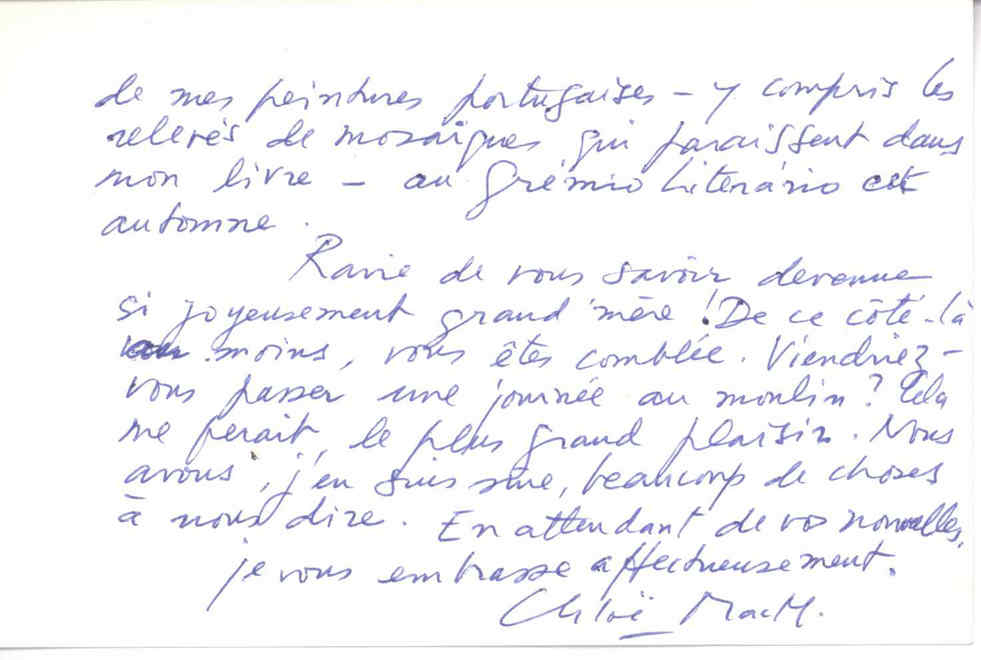 de mes peintures portugaises – y compris les
relevés de mosaïques qui paraissent dans
mon livre – au Grémio Literário cet
automne.
Ravie de vous savoir devenue
si joyeusement grand'mère ! De ce côté-là
au moins, vous êtes comblée. Viendriez-
vous passer une journée au moulin ? Cela
me ferait le plus grand plaisir. Nous
avons, j'en suis sûre, beaucoup de choses
à nous dire. En attendant de vos nouvelles,
je vous embrasse affectueusement.
Chloë MacM.